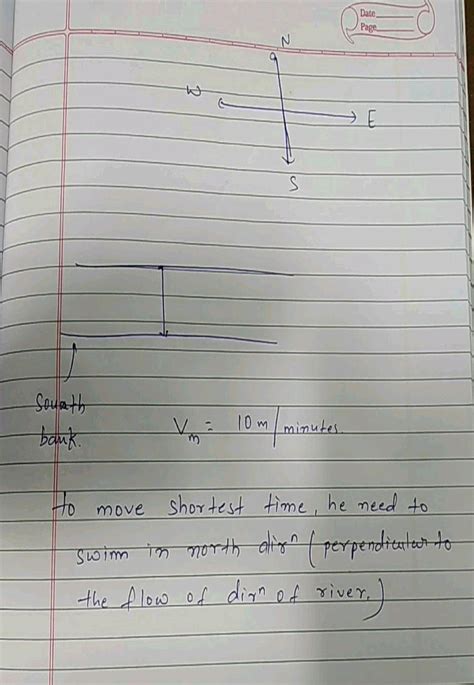 Date
Page
N
W
E
S
South
bank.
Vm = 10 m/minutes.
to move shortest time, he need to
swim in north dirn (perpendicular to
the flow of dirn of river.)